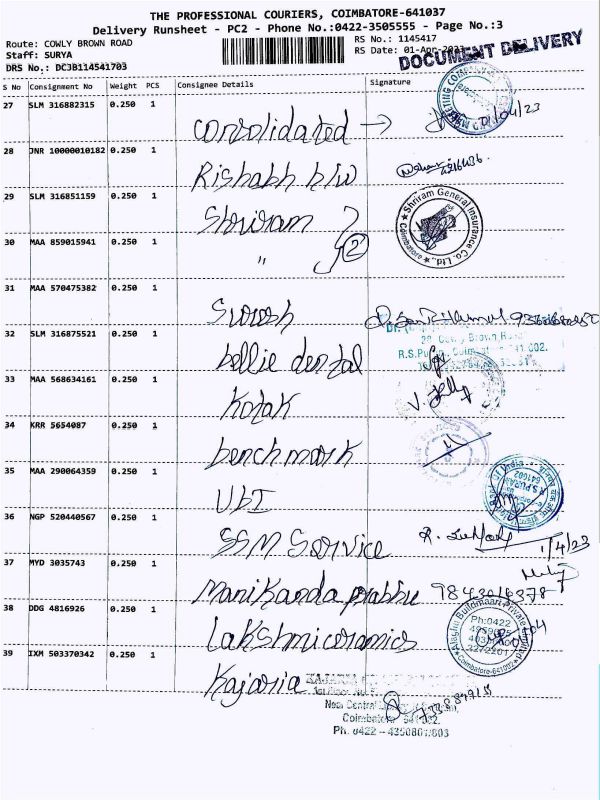 THE PROFESSIONAL COURIERS, COIMBATORE-641037
Delivery Runsheet - PC2 - Phone No.:0422-3505555 - Page No.:3
Route: COWLY BROWN ROAD
RS No.: 1145417
Staff: SURYA
RS Date: 01-Apr-2023
DRS No.: DCJB114541703
DOCUMENT DELIVERY
S No Consignment No Weight PCS Consignee Details Signature
27 SLM 316882315 0.250 1
consolidated → 01/04/23
28 JNR 10000010182 0.250 1
Rishabh h/w
29 SLM 316851159 0.250 1
Shriram
Shriram General Insurance Co. Ltd., Coimbatore
30 MAA 859015941 0.250 1
" 2
31 MAA 570475382 0.250 1
Suresh
32 SLM 316875521 0.250 1
bellie dental
Brown Road
Coimbatore 641 002.
33 MAA 568634161 0.250 1
Kotak
34 KRR 5654087 0.250 1
benchmark
35 MAA 290064359 0.250 1
UbI
641002
36 NGP 520440567 0.250 1
SSM Service
1/4/23
37 MYD 3035743 0.250 1
Manikanda prabhu
38 DDG 4816926 0.250 1
Lakshmi ceramics
Alaghu Buildmaart Private Limited
Ph:0422
Coimbatore-641002
39 IXM 503370342 0.250 1
Kajaria
Near Central
Coimbatore 641 002.
Ph. 0422 - 4350801/803